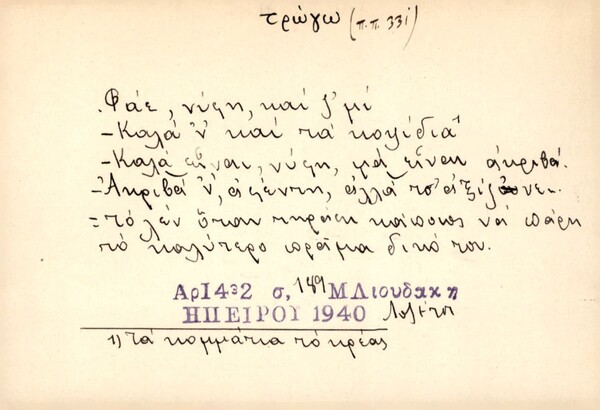 τρώγω (π.π. 33ί)
.Φάε, νύφη, καί ζ'μί
-Καλά 'ν' καί τά κοψίδια¹⁾
-Καλά εἶναι, νύφη, μά εἶναι ἀκριβά.
-Ἀκριβά 'ν', ἀφέντη, ἀλλά τ' ἀξίζουνε.
=τό λέν ὅταν πηραίνη κάποιος νά πάρη
τό καλύτερο πρᾶμα δικό του.
Αρ1432 σ, 149 ΜΔιουδακη
ΗΠΕΙΡΟΥ 1940
1) τά κομμάτια τό κρέας